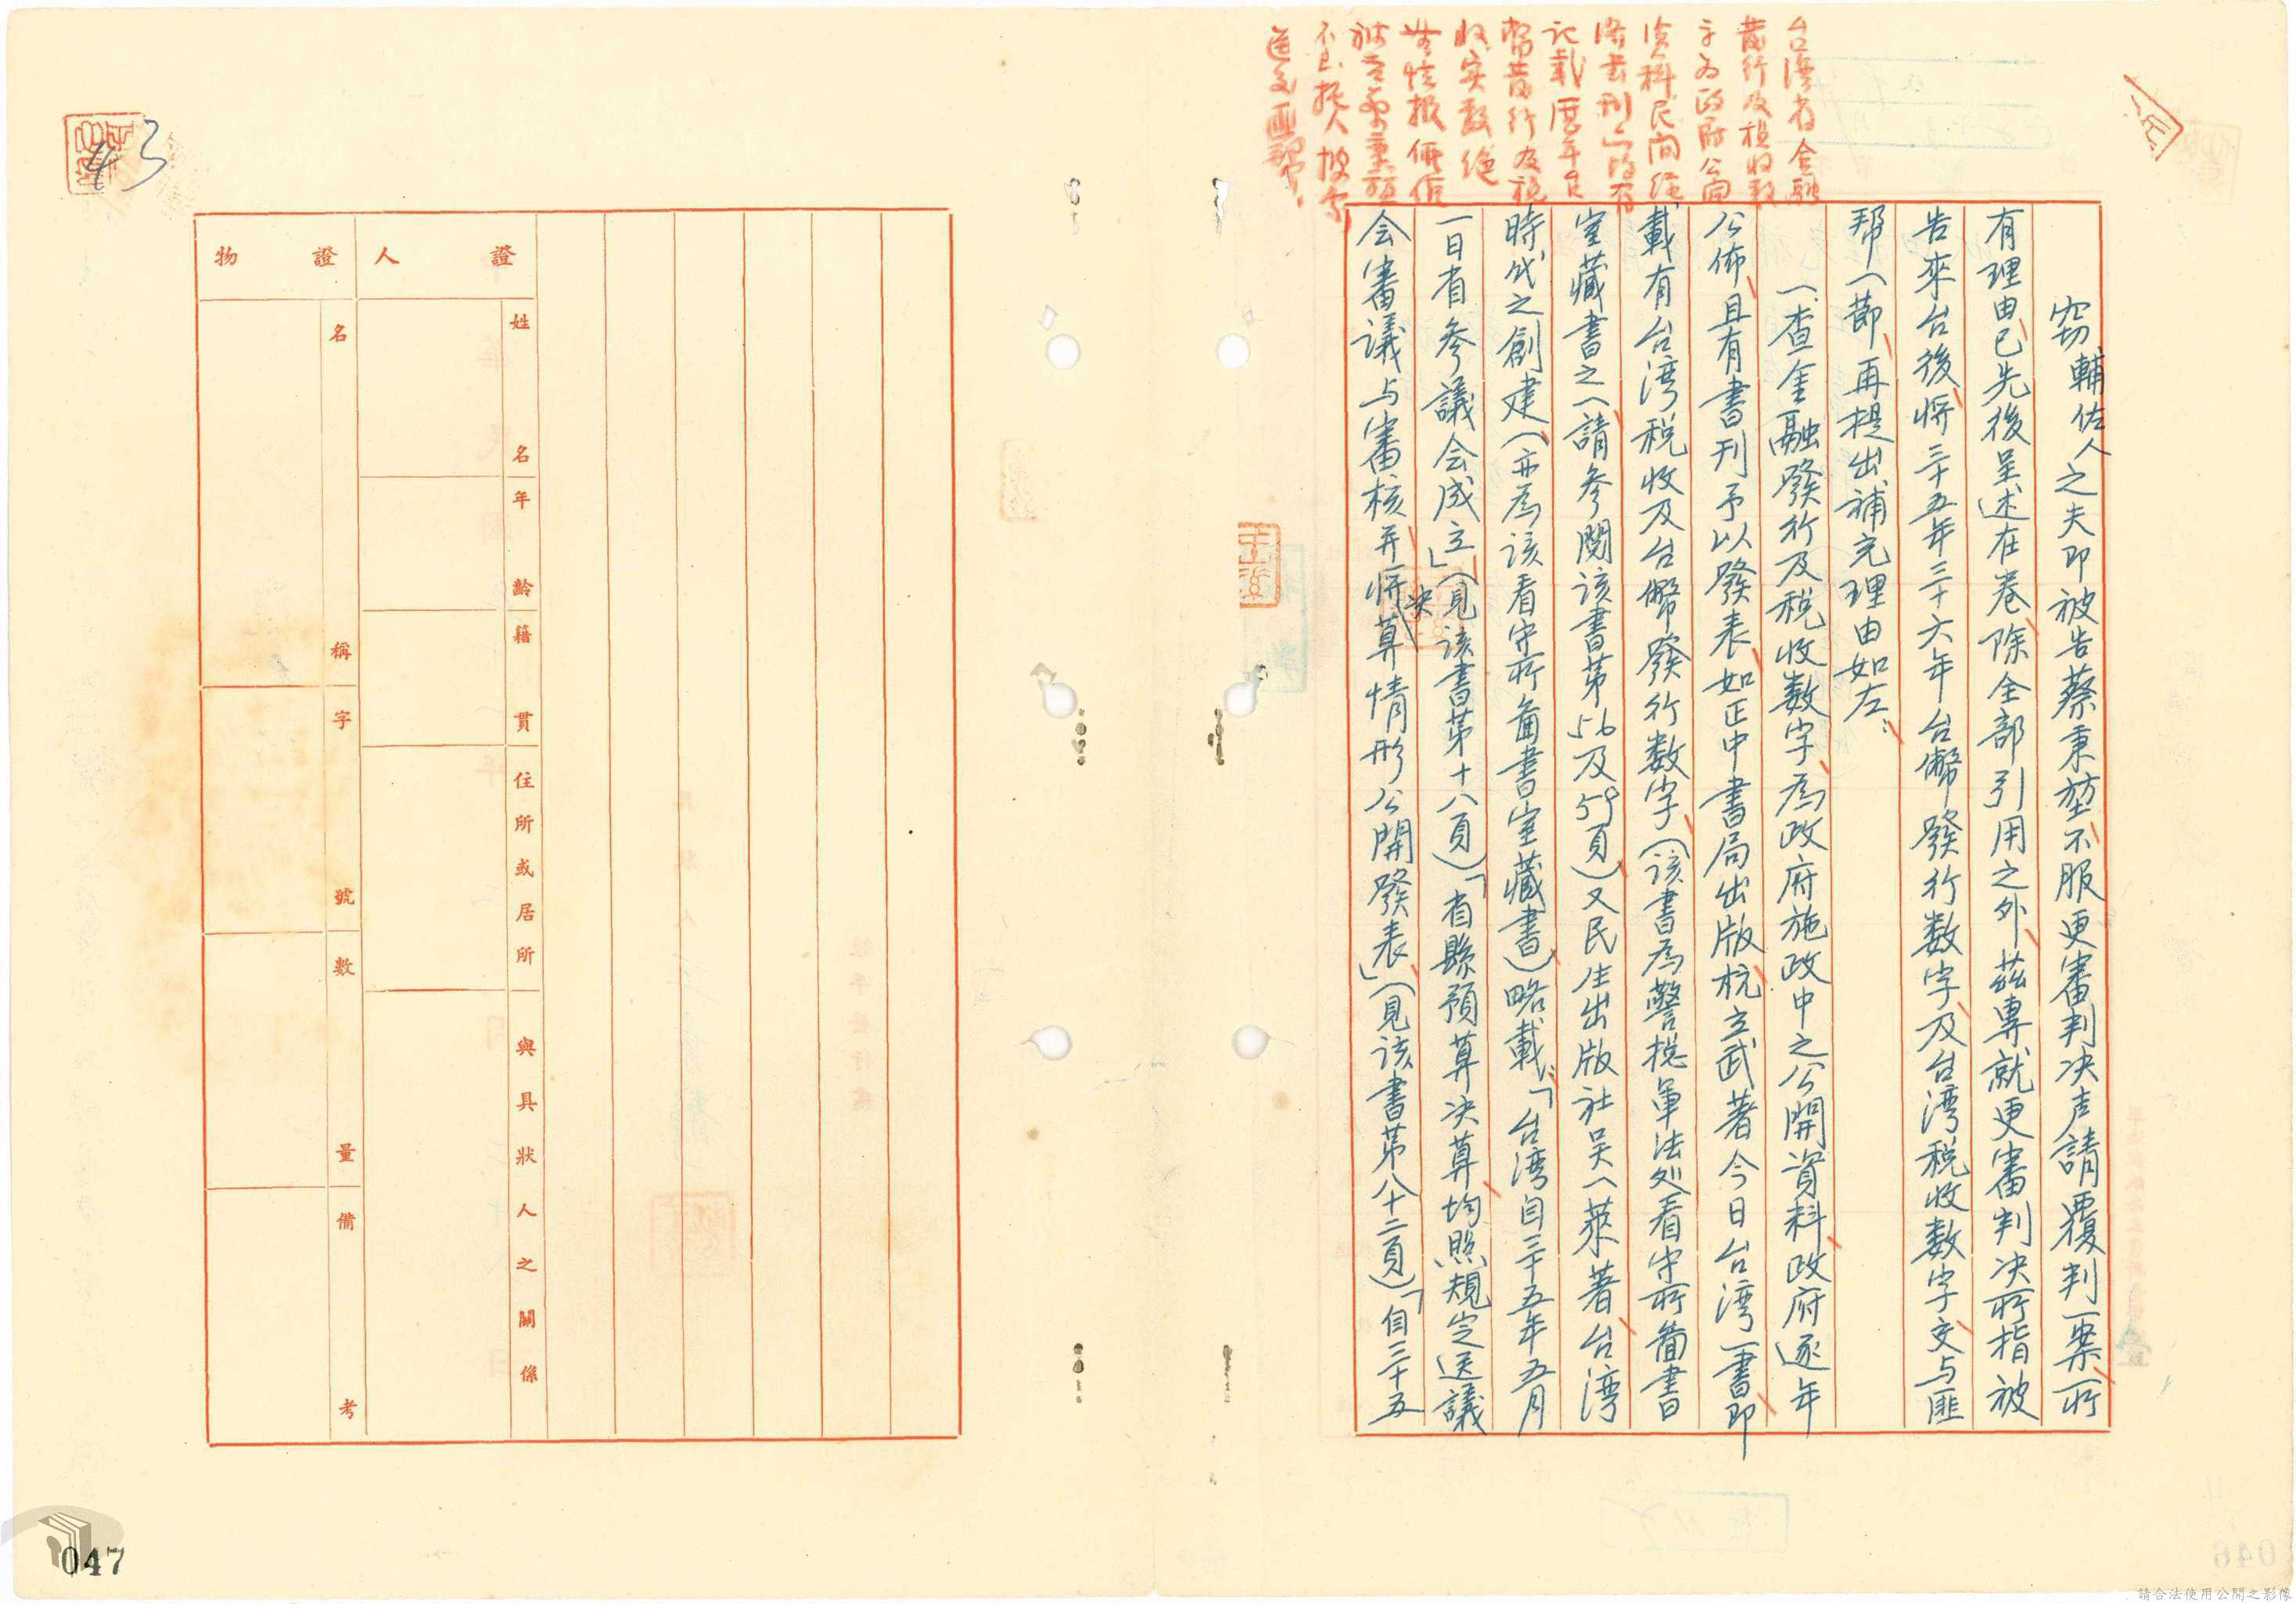 台灣省金融
發行及稅收數
字為政府公開
資料民間經
濟書刊亦均有
記載歷年台
幣發行及稅
收实數絶
無情報價值
被告蔡秉堃
不甚
竊輔佐人之夫即被告蔡秉堃不服更審判決声請覆判一案所
有理由已先後呈述在卷除全部引用之外茲專就更審判決所指被
告來台後將三十五年三十六年台幣發行数字及台湾税收数字交与匪
幫一節再提出補充理由如左：
一、查金融發行及税收数字為政府施政中之公開資料政府逐年
公佈且有書刊予以發表如正中書局出版杭立武著今日台湾一書即
載有台湾税收及台幣發行数字（該書為警總軍法处看守所圖書
室藏書之一請参閱該書第56及59頁）又民生出版社吴一萍著台湾
時代之創建（亦為該看守所圖書室藏書）略載：「台湾自三十五年五月
一日省参議会成立」（見該書第十八頁）「省縣預算决算均照規定送議
会審議与審核并將决算情形公開發表」（見該書第八十二頁）「自三十五
證人
姓名
年齡
籍貫
住所或居所
與具狀人之關係
證物
名稱
字號
數量
備考
43
047
046
請合法使用公開之影像